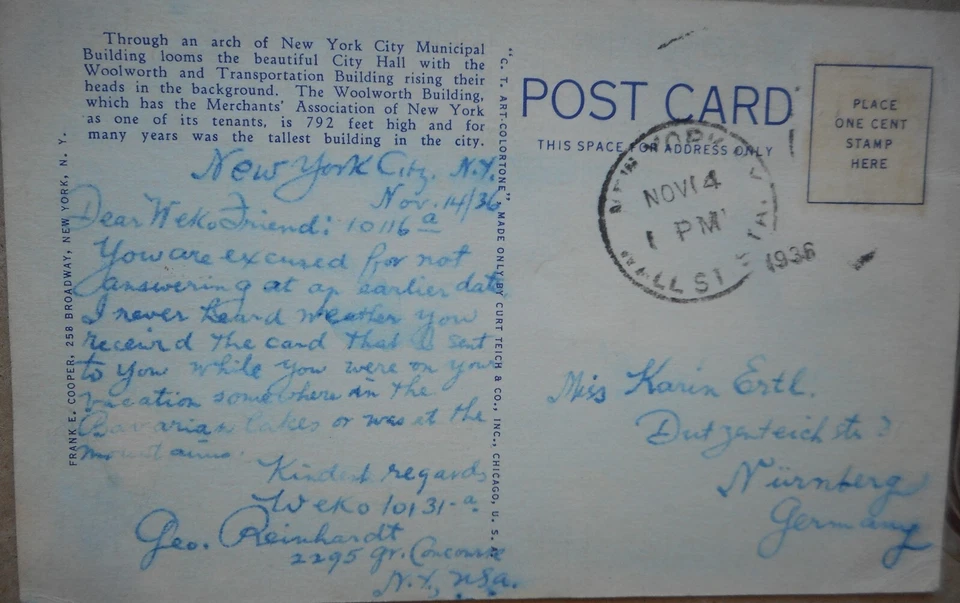 Through an arch of New York City Municipal
Building looms the beautiful City Hall with the
Woolworth and Transportation Building rising their
heads in the background. The Woolworth Building,
which has the Merchants' Association of New York
as one of its tenants, is 792 feet high and for
many years was the tallest building in the city.
New York City, N.Y.
Nov. 14/36
Dear Weko Friend: 10116 a
You are excused for not
answering at an earlier date
I never heard weather you
receiv'd the card that I sent
to you while you were on your
vacation somewhere in the
Bavarian lakes or was it the
mountains.
Kindest regards
Weko 10131-a
Geo. Reinhardt
2295 Gr. Concourse
N.Y., USA.
FRANK E. COOPER, 258 BROADWAY, NEW YORK, N. Y.
"C. T. ART-COLORTONE" MADE ONLY BY CURT TEICH & CO., INC., CHICAGO, U. S. A.
POST CARD
THIS SPACE FOR ADDRESS ONLY
PLACE
ONE CENT
STAMP
HERE
NEW YORK, N.Y.
NOV 14
1 PM
1936
WALL ST. STA.
Miss Karin Ertl.
Dutzenteichstr 3
Nürnberg
Germany